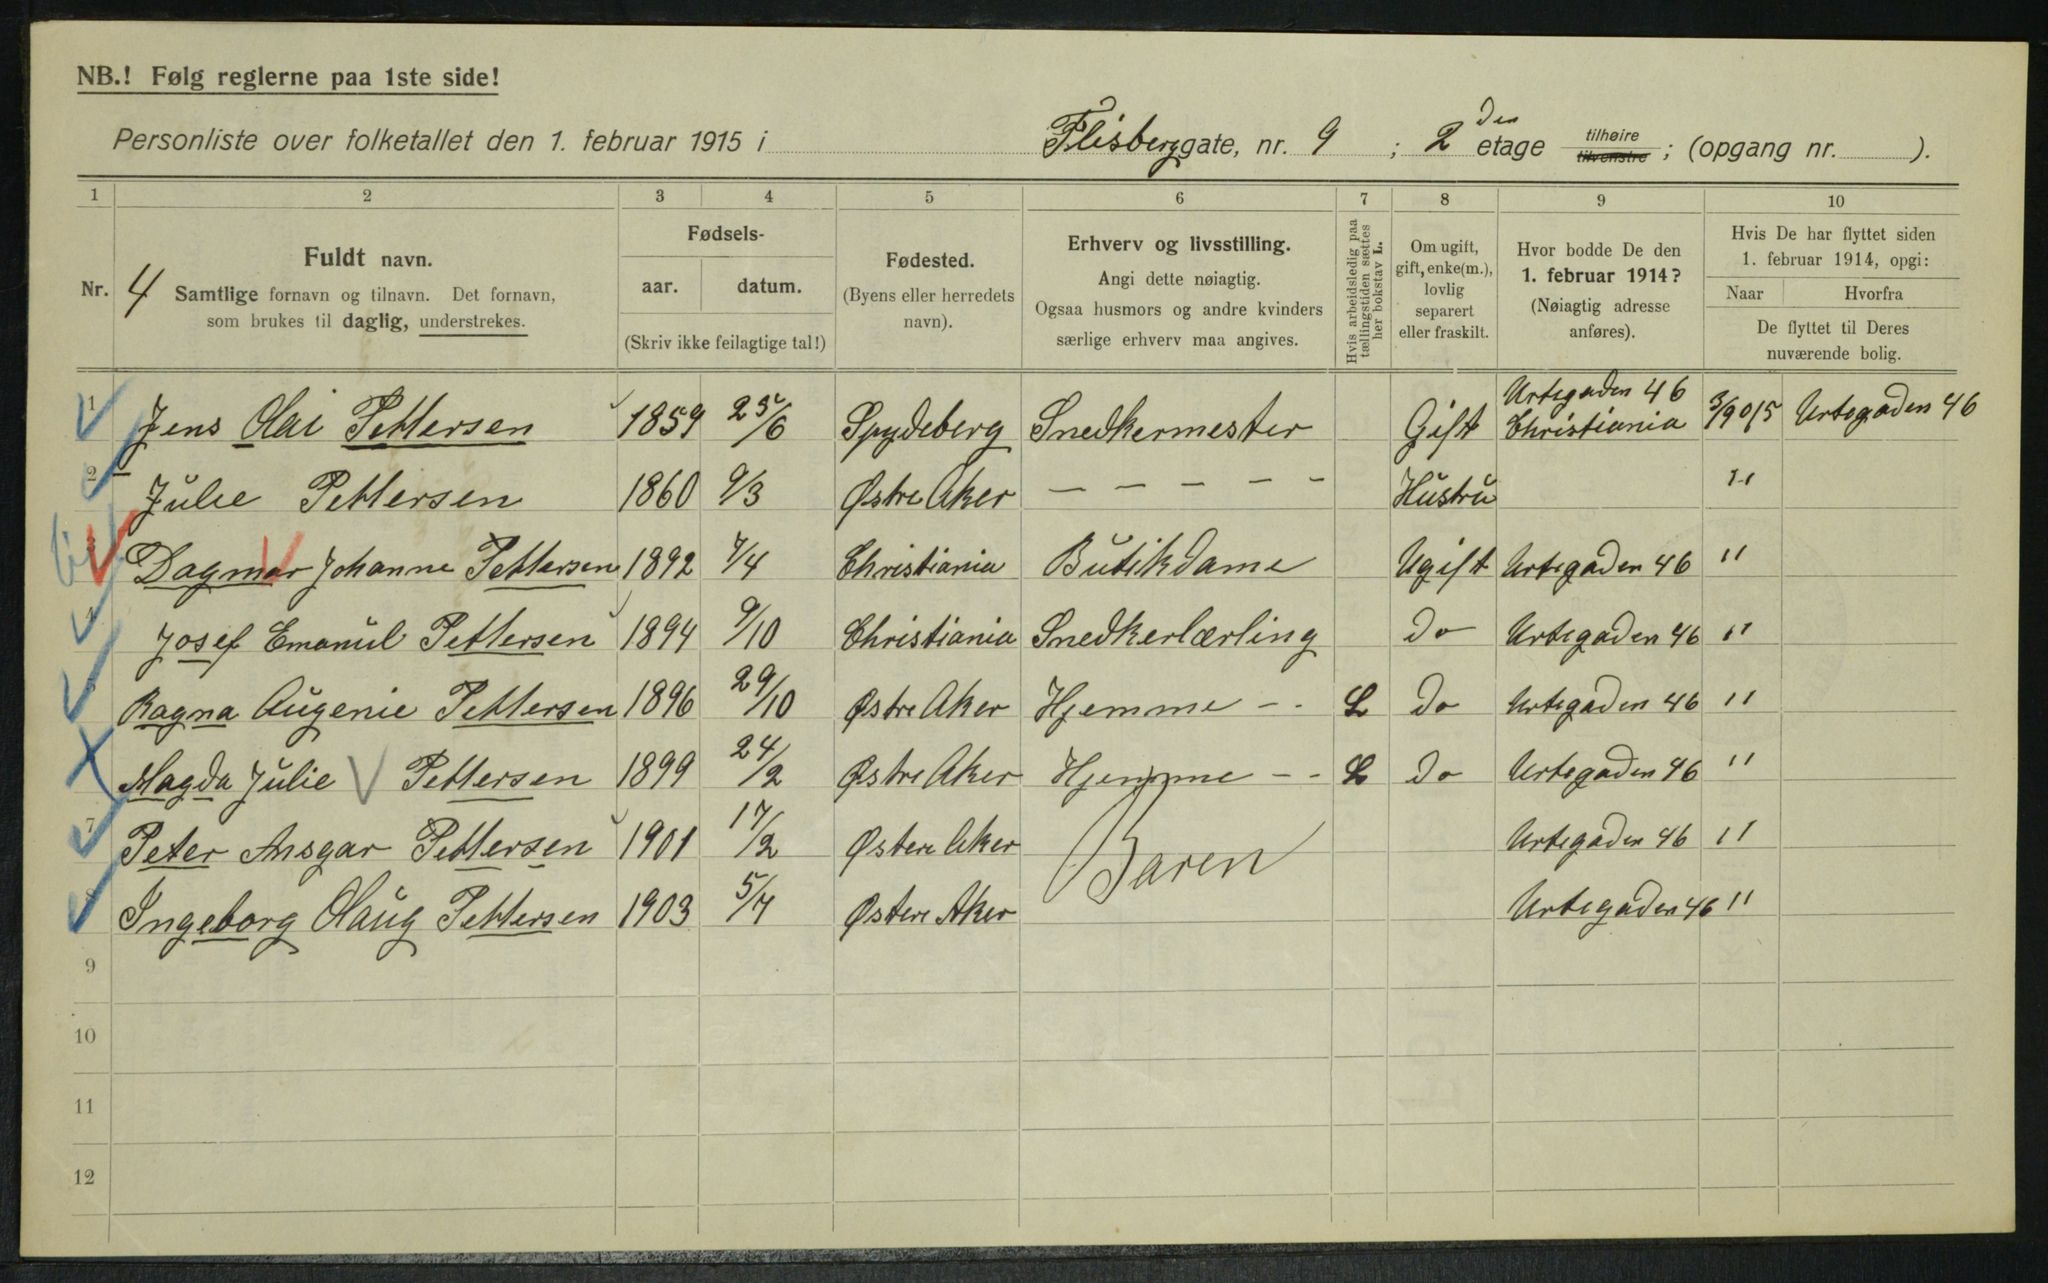 NB.! Følg reglerne paa 1ste side!
Personliste over folketallet den 1. februar 1915 i Flisberggate, nr. 9 ; 2 den etage tilhøire tilvenstre ; (opgang nr. ).
1 2 3 4 5 6 7 8 9 10
Nr. 4
Fuldt navn.
Samtlige fornavn og tilnavn. Det fornavn,
som brukes til daglig, understrekes.
Fødsels-
aar. datum.
(Skriv ikke feilagtige tal!)
Fødested.
(Byens eller herredets
navn).
Erhverv og livsstilling.
Angi dette nøiagtig.
Ogsaa husmors og andre kvinders
særlige erhverv maa angives.
Hvis arbeidsledig paa
tællingstiden sættes
her bokstav L.
Om ugift,
gift, enke(m.),
lovlig
separert
eller fraskilt.
Hvor bodde De den
1. februar 1914?
(Nøiagtig adresse
anføres).
Hvis De har flyttet siden
1. februar 1914, opgi:
Naar Hvorfra
De flyttet til Deres
nuværende bolig.
1 Jens Olai Pettersen 1859 25/6 Spydeberg Snedkermester Gift Urtegaden 46 Christiania Urtegaden 46
2 Julie Pettersen 1860 9/3 Østre Aker — — — — — Hustru "
3 Dagmar Johanne Pettersen 1892 7/4 Christiania Butikdame Ugift Urtegaden 46 "
4 Josef Emanuel Pettersen 1894 9/10 Christiania Snedkerlærling do Urtegaden 46 "
5 Ragna Augenie Pettersen 1896 29/10 Østre Aker Hjemme - - L do Urtegaden 46 "
Magda Julie Pettersen 1899 24/2 Østre Aker Hjemme - - L do Urtegaden 46 "
7 Peter Ansgar Pettersen 1901 17/2 Østere Aker Baren Urtegaden 46 "
8 Ingeborg Olaug Pettersen 1903 5/7 Østere Aker Urtegaden 46 "
9
10
11
12